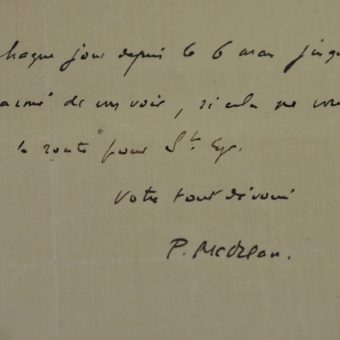 chaque jour depuis le 6 mai jusqu
de vous voir, si cela ne vous
la route pour St Cyr.
Votre tout dévoué